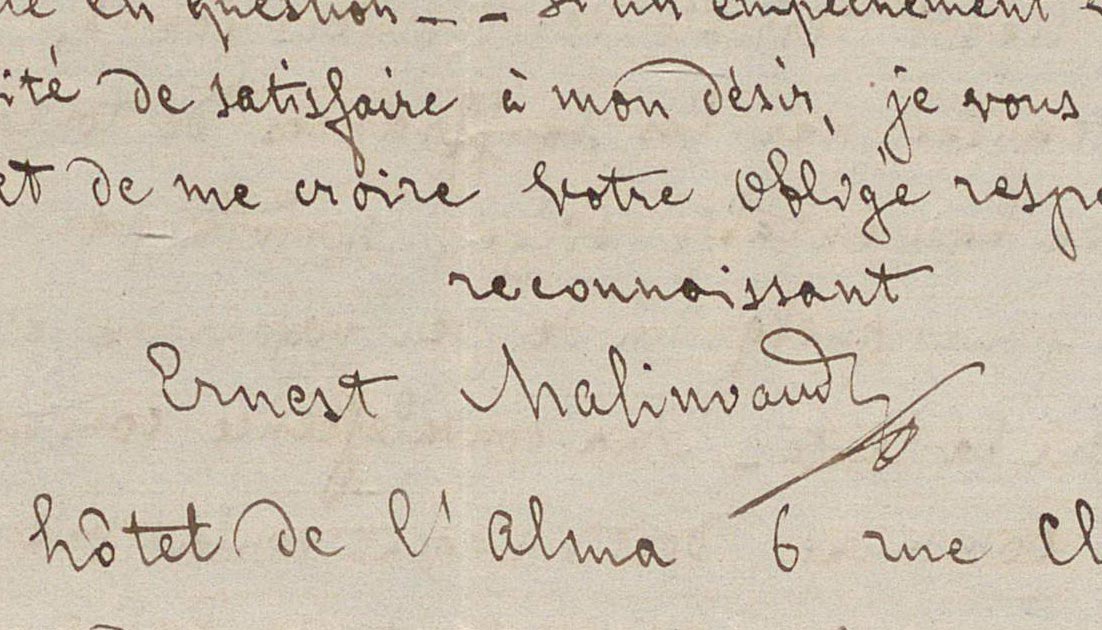 en question -- si un empêchement
ité de satisfaire à mon désir, je vous
et de me croire votre obligé respe
reconnaissant
Ernest Malinvaud
hôtel de l'Alma 6 rue Cl